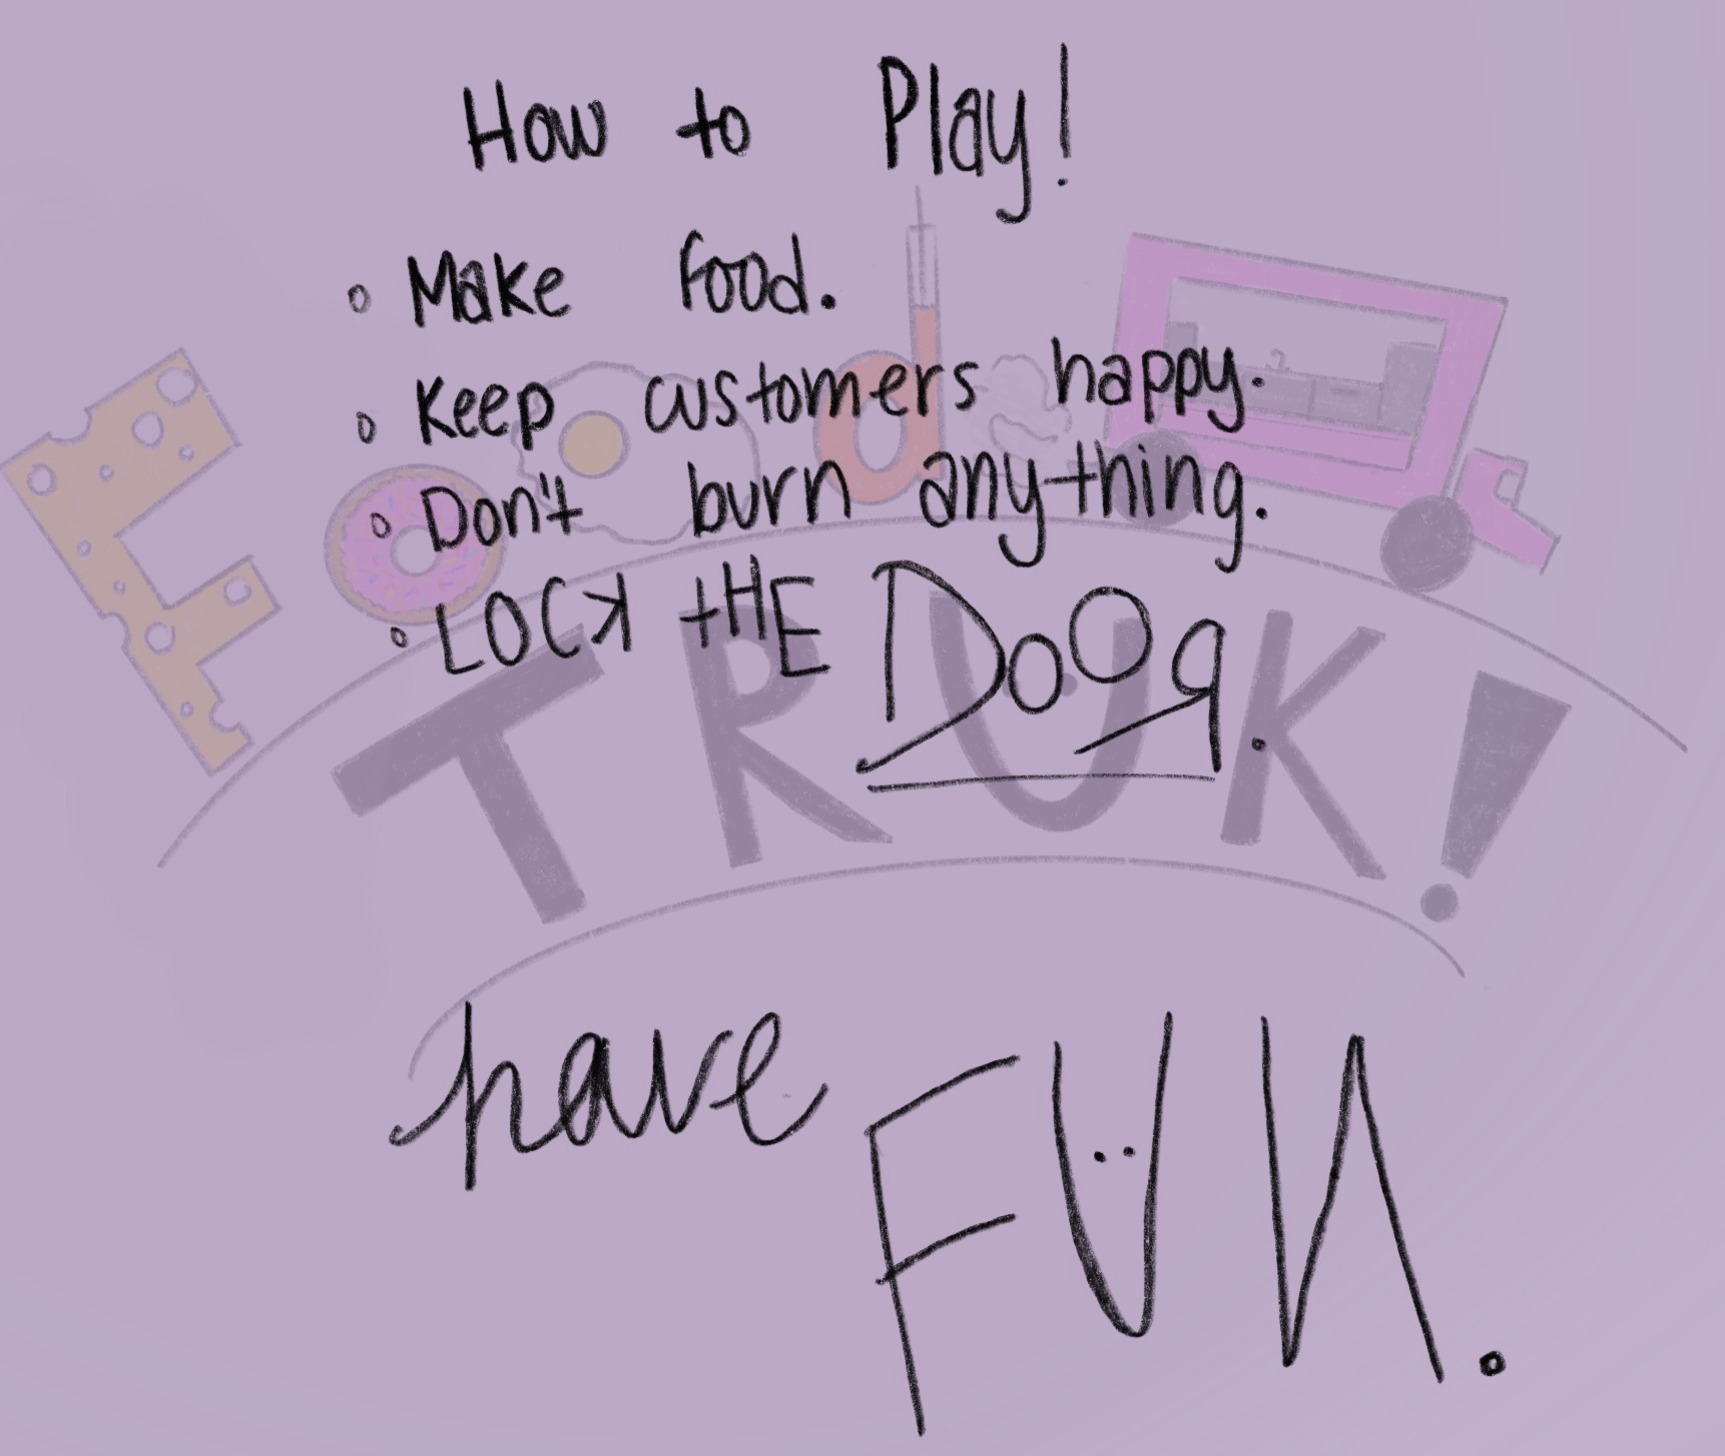 How to Play!
Make food.
Keep customers happy.
Don't burn anything.
LOCK tHE DOOR.
Food
TRUK!
have
FUN.